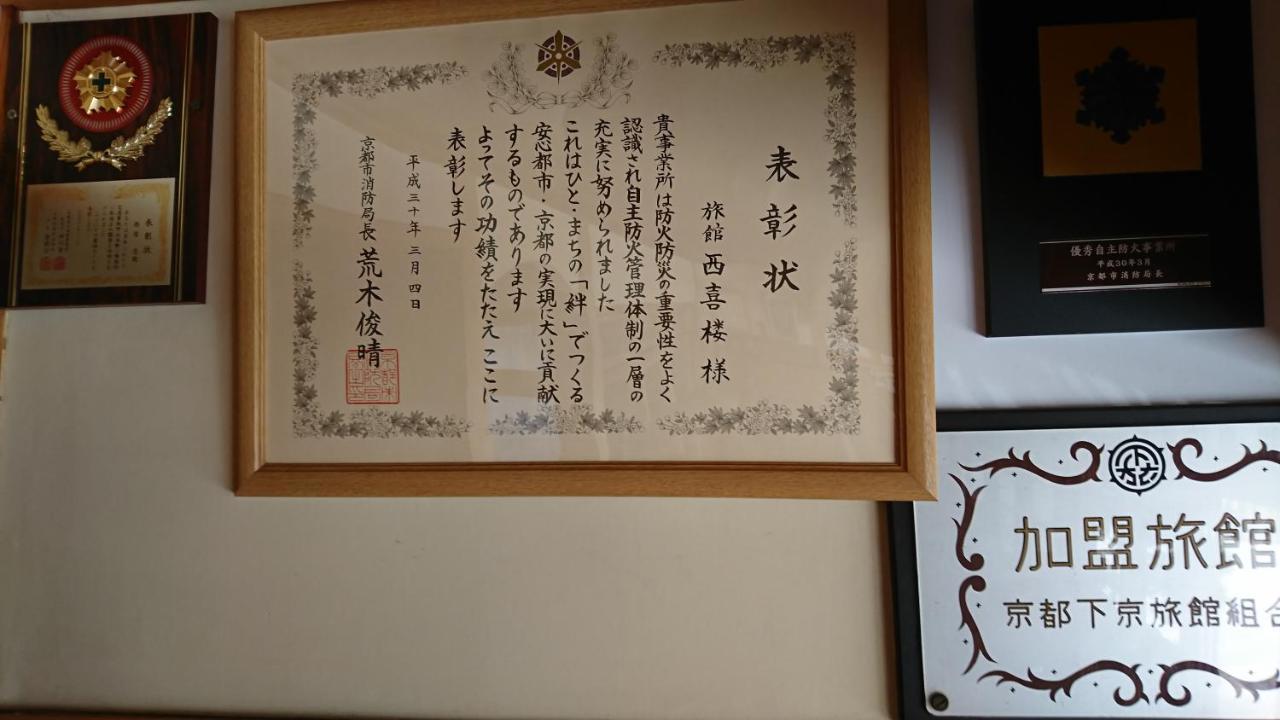 表彰状
旅館 西喜楼 様
貴事業所は防火防災の重要性をよく
認識され自主防火管理体制の一層の
充実に努められました
これはひと・まちの「絆」でつくる
安心都市・京都の実現に大いに貢献
するものであります
よってその功績をたたえ ここに
表彰します
平成三十年 三月四日
京都市消防局長 荒木俊晴
優秀自主防火事業所
平成30年3月
京都市消防局長
加盟旅館
京都下京旅館組合
表彰状